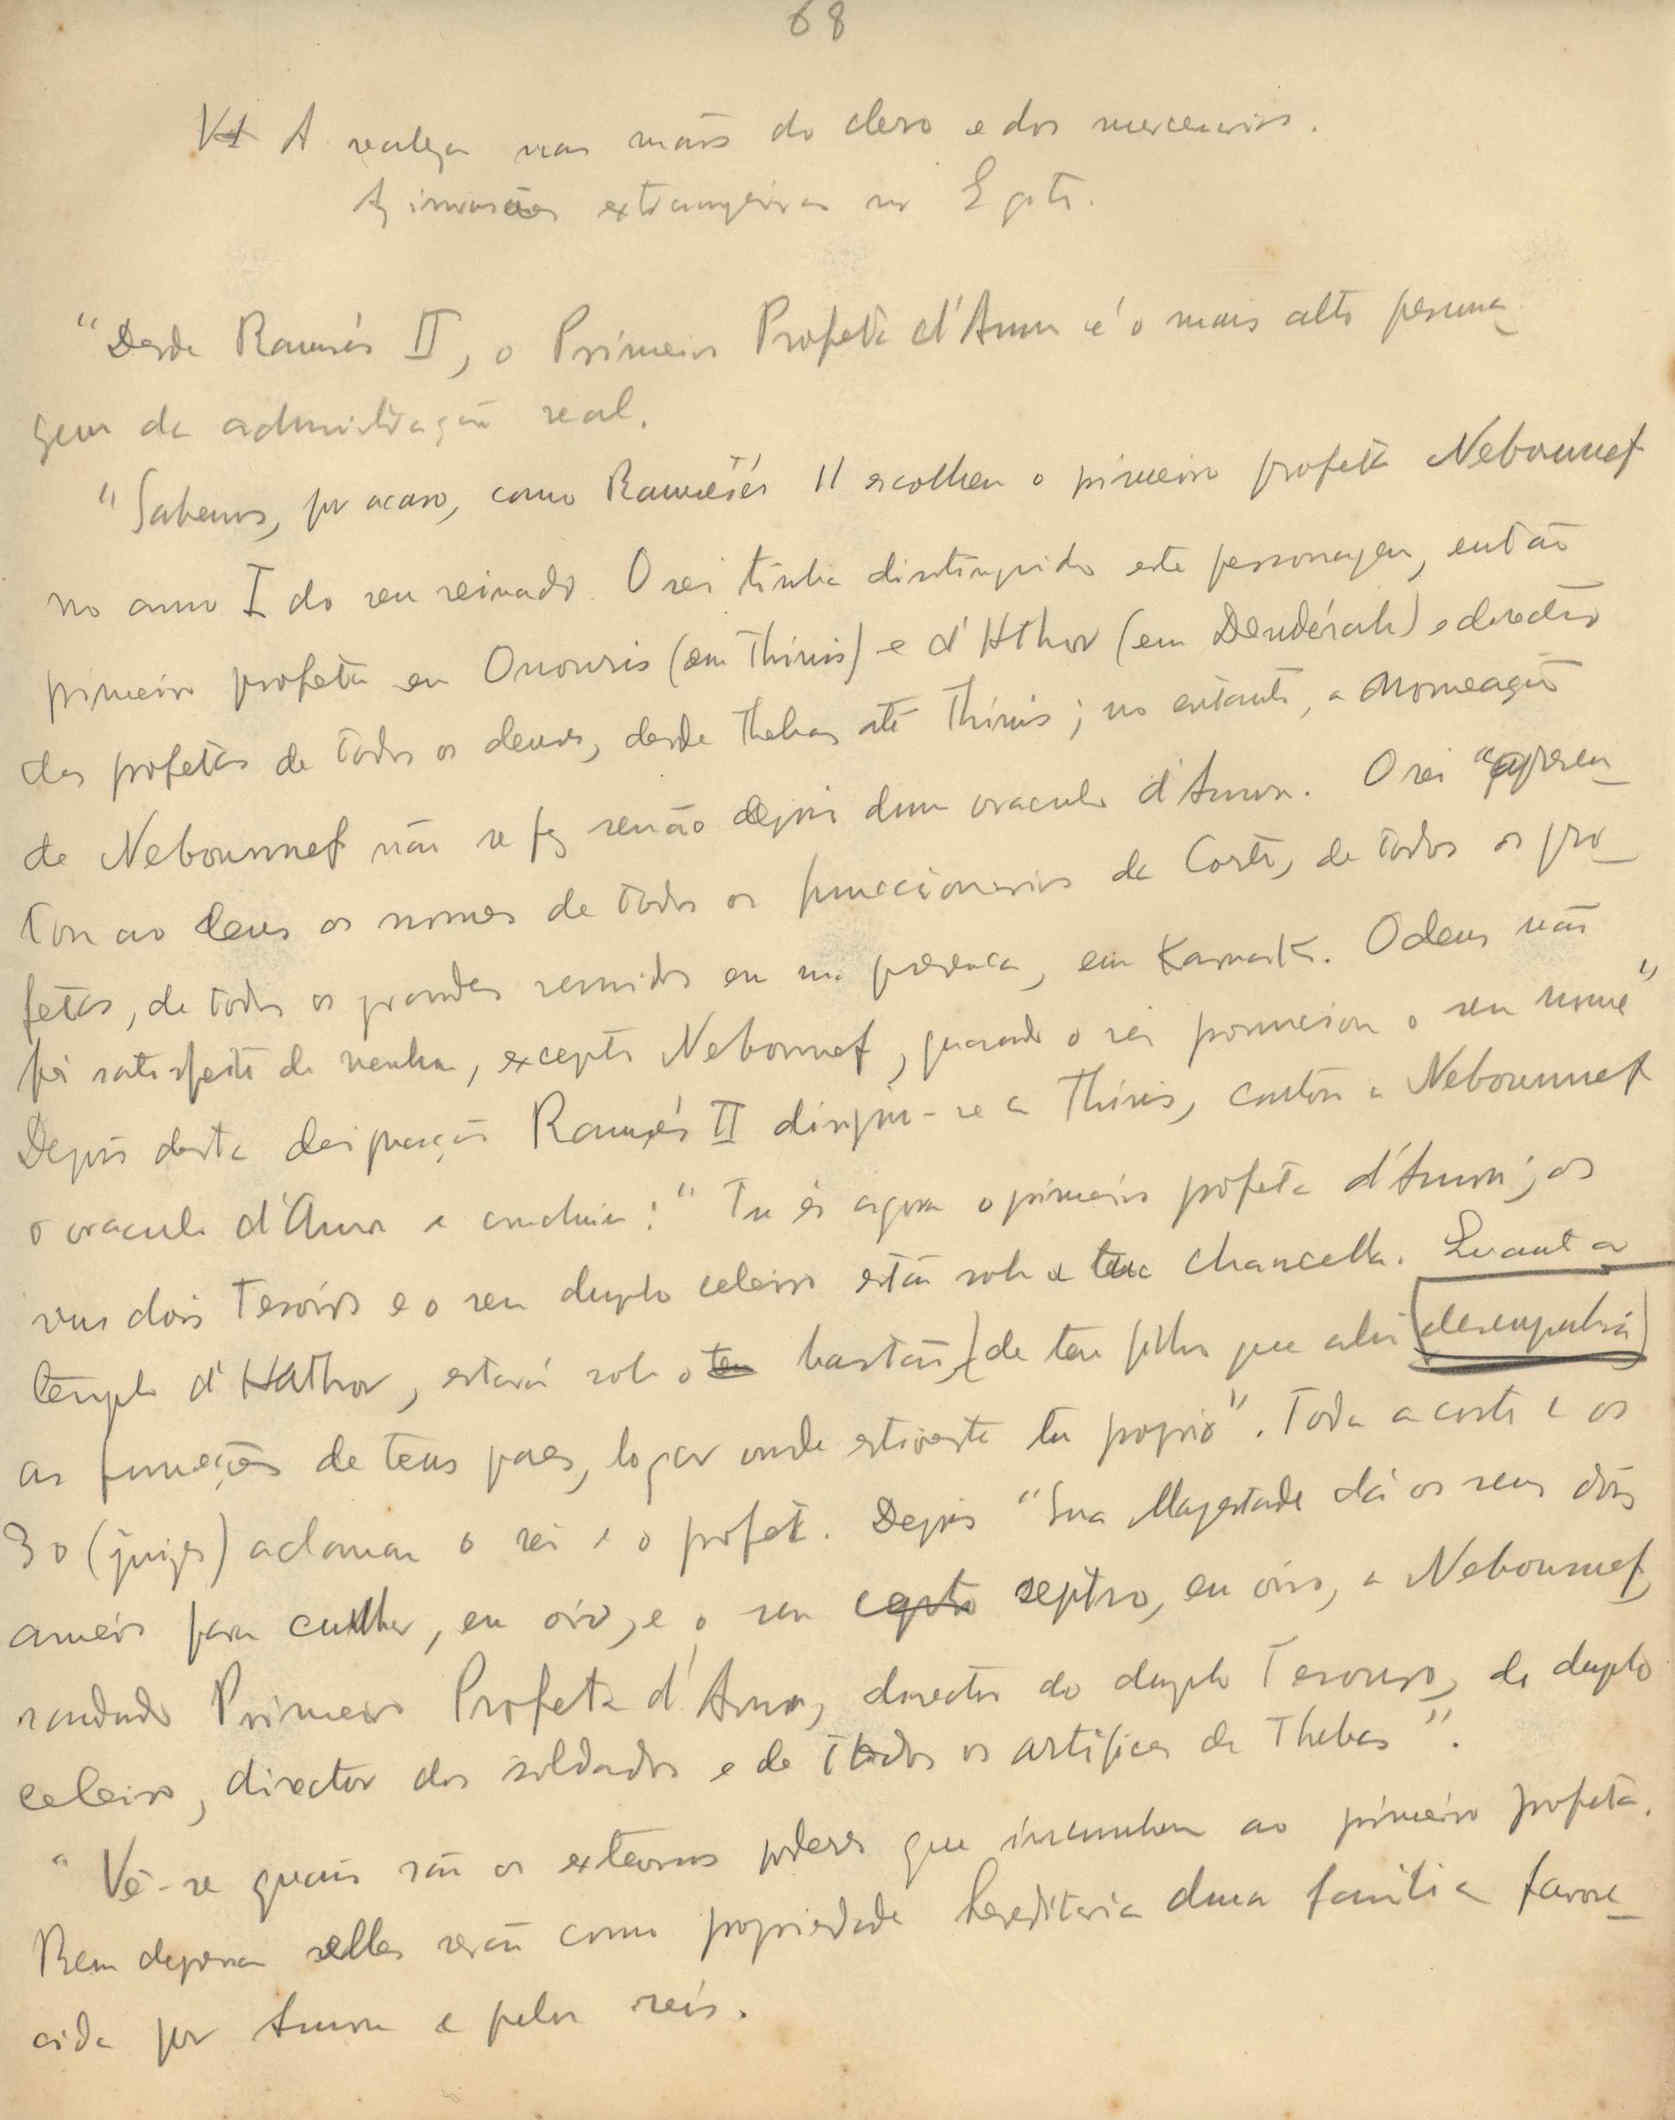 68
VI A realeza nas mãos do clero e dos mercenarios.
As invasões extrangeiras no Egito.
"Desde Ramsés II, o Primeiro Profeta d'Amon é o mais alto persona_
gem da administração real.
"Sabemos, por acaso, como Ramsés II escolheu o primeiro profeta Nebounnef
no anno I do seu reinado. O rei tinha distinguido este personagem, então
primeiro profeta em Onouris (em Thinis) e d'Hthor (em Dendérah) e director
dos profetas de todos os deuses, desde Thebas até Thinis; no entanto, a nomeação
de Nebounnef não se fez senão depois dum oraculo d'Amon. O rei "apresen_
tou ao deus os nomes de todos os funccionarios da Corte, de todos os pro_
fetas, de todos os grandes reunidos em sua presença, em Karnak. O deus não
foi satisfeito de nenhum, excepto Nebounnef, quando o rei pronunciou o seu nome"
Depois desta designação Ramsés II dirigiu-se a Thinis, contou a Nebounnef
o oraculo d'Amon e concluiu: "Tu és agora o primeiro profeta d'Amon; os
seus dois Tesoiros e o seu duplo celeiro estão sob a tua chancella. Quanto ao
templo d'Hathor, estará sob o teu bastão, de teu filho que ahi desempenhará
as funcções de teus paes, logar onde estiveste tu proprio". Toda a corte e os
30 (juizes) aclamam o rei e o profeta. Depois "Sua Magestade dá os seus dois
aneis para cunhar, em oiro, e o seu septro, em oiro, a Nebounnef,
saudado Primeiro Profeta d'Amon, director do duplo Tesouro, do duplo
celeiro, director dos soldados e de todos os artifices de Thebas".
"Vê-se quais são os extensos poderes que incumbem ao primeiro profeta.
Bem depressa elles serão como propriedade hereditaria duma familia favore_
cida por Amon e pelos reis.